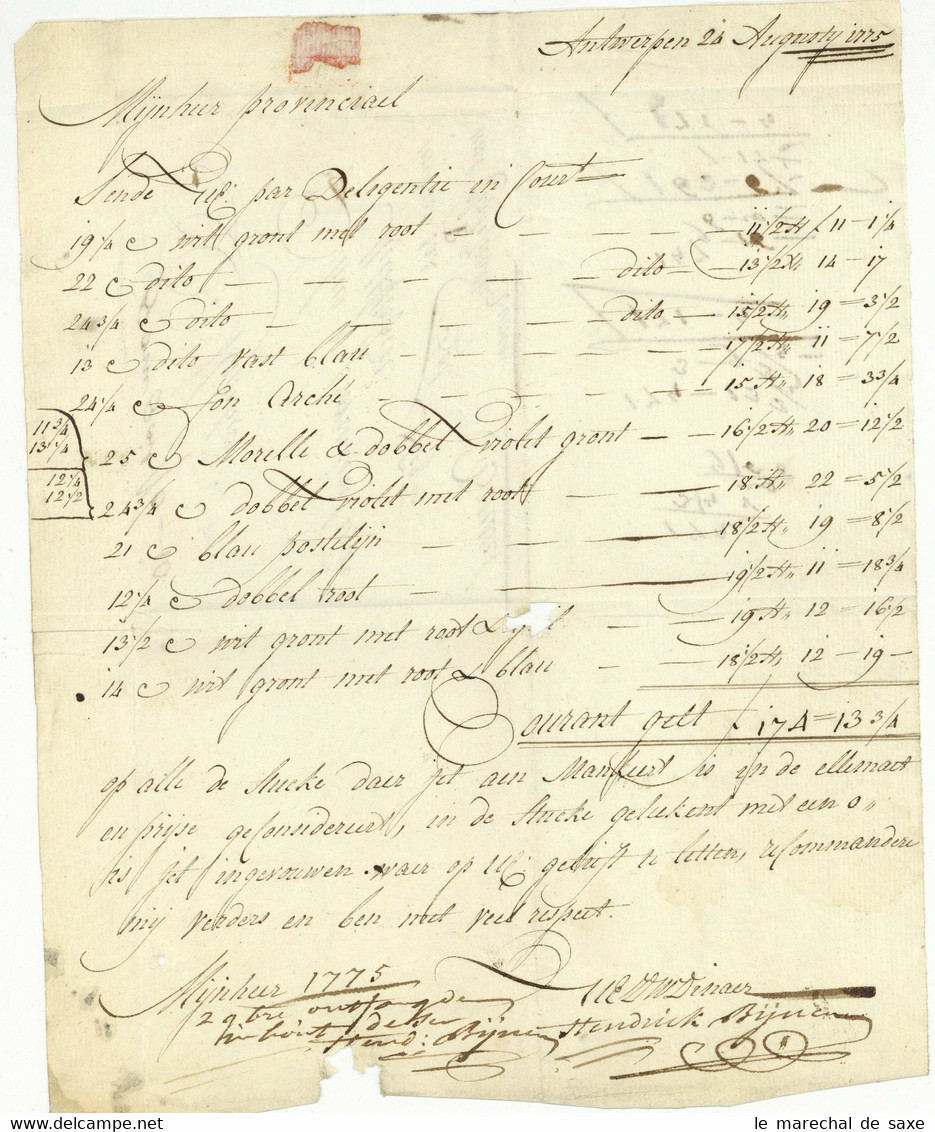 Antwerpen 24 Augusty 1775
Mijnheer provinciael
Sende UE: par Deligentie in Court
19 1/4 e wit gront met root — — — — — 11 1/2 St f 11 - 1 1/4
22 e dito — — — — — — dito — 13 1/2 St 14 - 17
24 3/4 e dito — — — — — dito — 15 1/2 St 19 = 3 1/2
13 e dito vast blau — — — — — — 17 1/2 St 11 = 7 1/2
24 1/4 e fon Arché — — — — — — 15 St 18 = 3 3/4
11 3/4
13 1/4
25 e Morelle & dobbel violet gront — — 16 1/2 St 20 = 12 1/2
12 1/4
12 1/2
24 3/4 e dobbel violet met root — — — 18 St 22 = 5 1/2
21 e blau postelijn — — — — — 18 1/2 St 19 = 8 1/2
12 1/4 e dobbel root — — — — 19 1/2 St 11 = 18 3/4
13 1/2 e wit gront met root & — — 19 St 12 = 16 1/2
14 e wit gront met root & blau — — 18 1/2 St 12 - 19 -
Courant gelt f 174 = 13 3/4
op alle de stucke daer jet aen Mankeert is in de ellemaet
en prijse geconsidereert, in de stucke geteekent met een o„
is jet ingevouwen waer op UE gelieft te letten, recommandere
mij verders en ben met veel respect.
Mijnheer 1775
UE Dinaer
29bre ontfang de
Hend: Bijnen
Hendrick Bijnen
le marechal de saxe